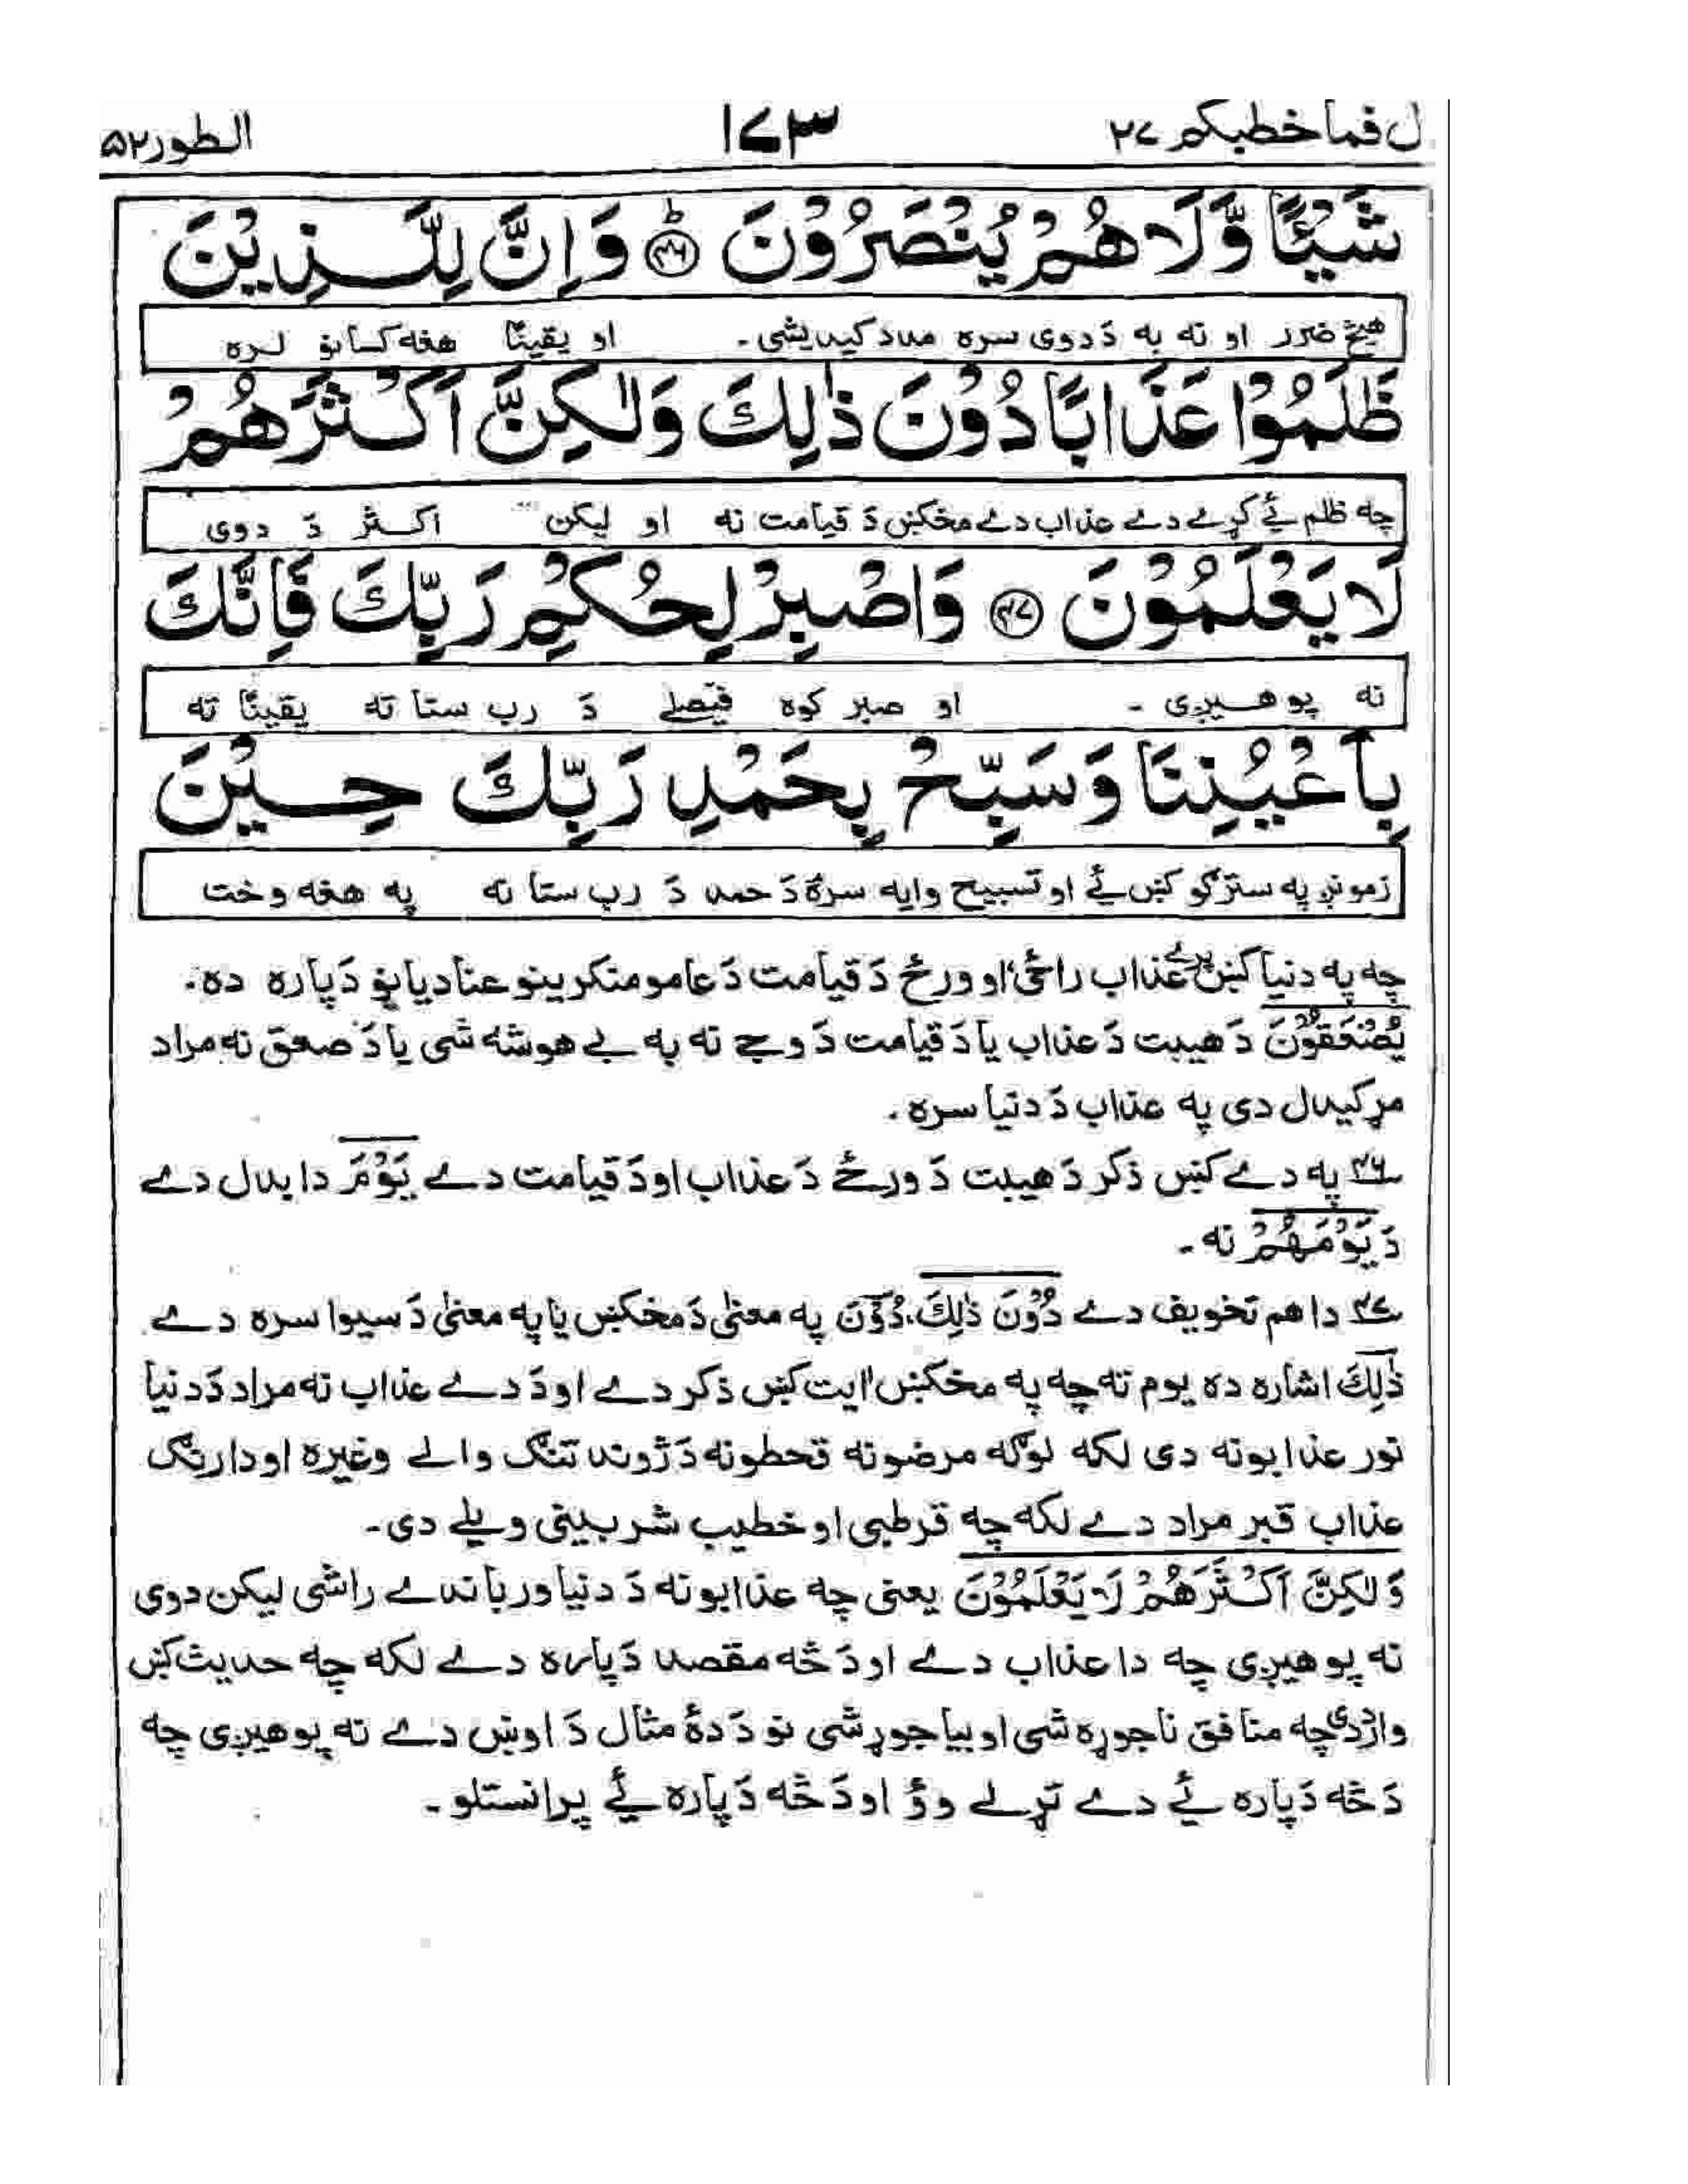 ل فما خطبكم ٢٧ ١٧٣ الطور ٥٢
شَيْئًا وَّلَا هُمْ يُنْصَرُوْنَ ﴿٤٦﴾ؕ وَاِنَّ لِلَّذِيْنَ
هیڅ ضرر او نه به دَ دوی سره مدد کیدیشی۔ او یقینًا هغه کسانو لره
ظَلَمُوْا عَذَابًا دُوْنَ ذٰلِكَ وَلٰكِنَّ اَكْثَرَهُمْ
چه ظلم ئے کړے دے عذاب دے مخکښ دَ قیامت نه او لیکن اکثر دَ دوی
لَا يَعْلَمُوْنَ ﴿٤٧﴾ وَاصْبِرْ لِحُكْمِ رَبِّكَ فَاِنَّكَ
نه پوهیږی۔ او صبر کوه فیصلے دَ رب ستا ته یقینًا ته
بِاَعْيُنِنَا وَسَبِّحْ بِحَمْدِ رَبِّكَ حِيْنَ
زمونږ په سترګو کښ ئے او تسبیح وایه سره دَ حمد دَ رب ستا نه په هغه وخت
چه په دنیا کښ پرے عذاب راځی او ورځ دَ قیامت دَ عامو منکرینو عنادیانو دَپاره ده.
يُصْعَقُوْنَ دَ هیبت دَ عذاب یا دَ قیامت دَ وجے نه به بے هوشه شی یا دَ صعق نه مراد
مړ کیدال دی په عذاب دَ دنیا سره.
٤٦ په دے کښ ذکر دَ هیبت دَ ورځے دَ عذاب او دَ قیامت دے يَوْمَ دا بدل دے
دَ يَوْمَهُمْ نه۔
٤٧ دا هم تخویف دے دُوْنَ ذٰلِكَ. دُوْنَ په معنیٰ دَ مخکښ یا په معنیٰ دَ سیوا سره دے
ذٰلِكَ اشاره ده یوم ته چه په مخکښ ایت کښ ذکر دے او دَ دے عذاب نه مراد دَ دنیا
نور عذابونه دی لکه لوګه مرضونه قحطونه دَ ژوند تنګ والے وغیره او دارنګ
عذاب قبر مراد دے لکه چه قرطبی او خطیب شربینی ویلے دی۔
وَلٰكِنَّ اَكْثَرَهُمْ لَا يَعْلَمُوْنَ یعنی چه عذابونه دَ دنیا ورباندے راشی لیکن دوی
نه پوهیږی چه دا عذاب دے او دَ څه مقصد دَپاره دے لکه چه حدیث کښ
وارد دی چه منافق ناجوړه شی او بیا جوړ شی نو دَ دهٔ مثال دَ اوښ دے نه پوهیږی چه
دَ څه دَپاره ئے دے تړلے وؤ او دَ څه دَپاره ئے پرانستلو۔